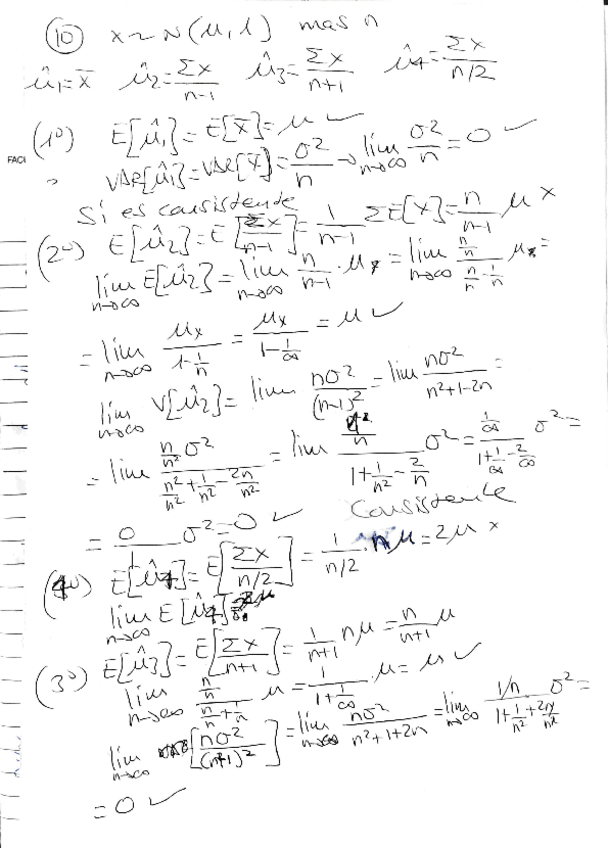 (10) x ~ N(μ, 1) mas n
μ̂₁ = x̄   μ̂₂ = Σx/(n-1)   μ̂₃ = Σx/(n+1)   μ̂₄ = Σx/(n/2)
(1º) E[μ̂₁] = E[x̄] = μ ✓
FACU
VAR[μ̂₁] = VAR[x̄] = σ²/n → lim n→∞ σ²/n = 0 ✓
Sí es consistente
(2º) E[μ̂₂] = E[Σx/(n-1)] = 1/(n-1) ΣE[x] = n/(n-1) μ ×
lim n→∞ E[μ̂₂] = lim n→∞ n/(n-1) · μx = lim n→∞ (n/n)/(n/n - 1/n) μx =
= lim n→∞ μx/(1 - 1/n) = μx/(1 - 1/∞) = μ ✓
lim n→∞ V[μ̂₂] = lim nσ²/(n-1)² = lim nσ²/(n²+1-2n) =
= lim (n/n² σ²)/(n²/n² + 1/n² - 2n/n²) = lim (1/n)/(1 + 1/n² - 2/n) σ² = (1/∞)/(1 + 1/∞ - 2/∞) σ² =
= 0/1 σ² = 0 ✓ Consistente
(4º) E[μ̂₄] = E[Σx/(n/2)] = 1/(n/2) · nμ = 2μ ×
lim n→∞ E[μ̂₄] = 2μ
(3º) E[μ̂₃] = E[Σx/(n+1)] = 1/(n+1) nμ = n/(n+1) μ
lim n→∞ (n/n)/(n/n + 1/n) μ = 1/(1 + 1/∞) · μ = μ ✓
lim n→∞ [nσ²/(n+1)²] = lim n→∞ nσ²/(n²+1+2n) = lim n→∞ (1/n)/(1 + 1/n² + 2n/n²) σ² =
= 0 ✓